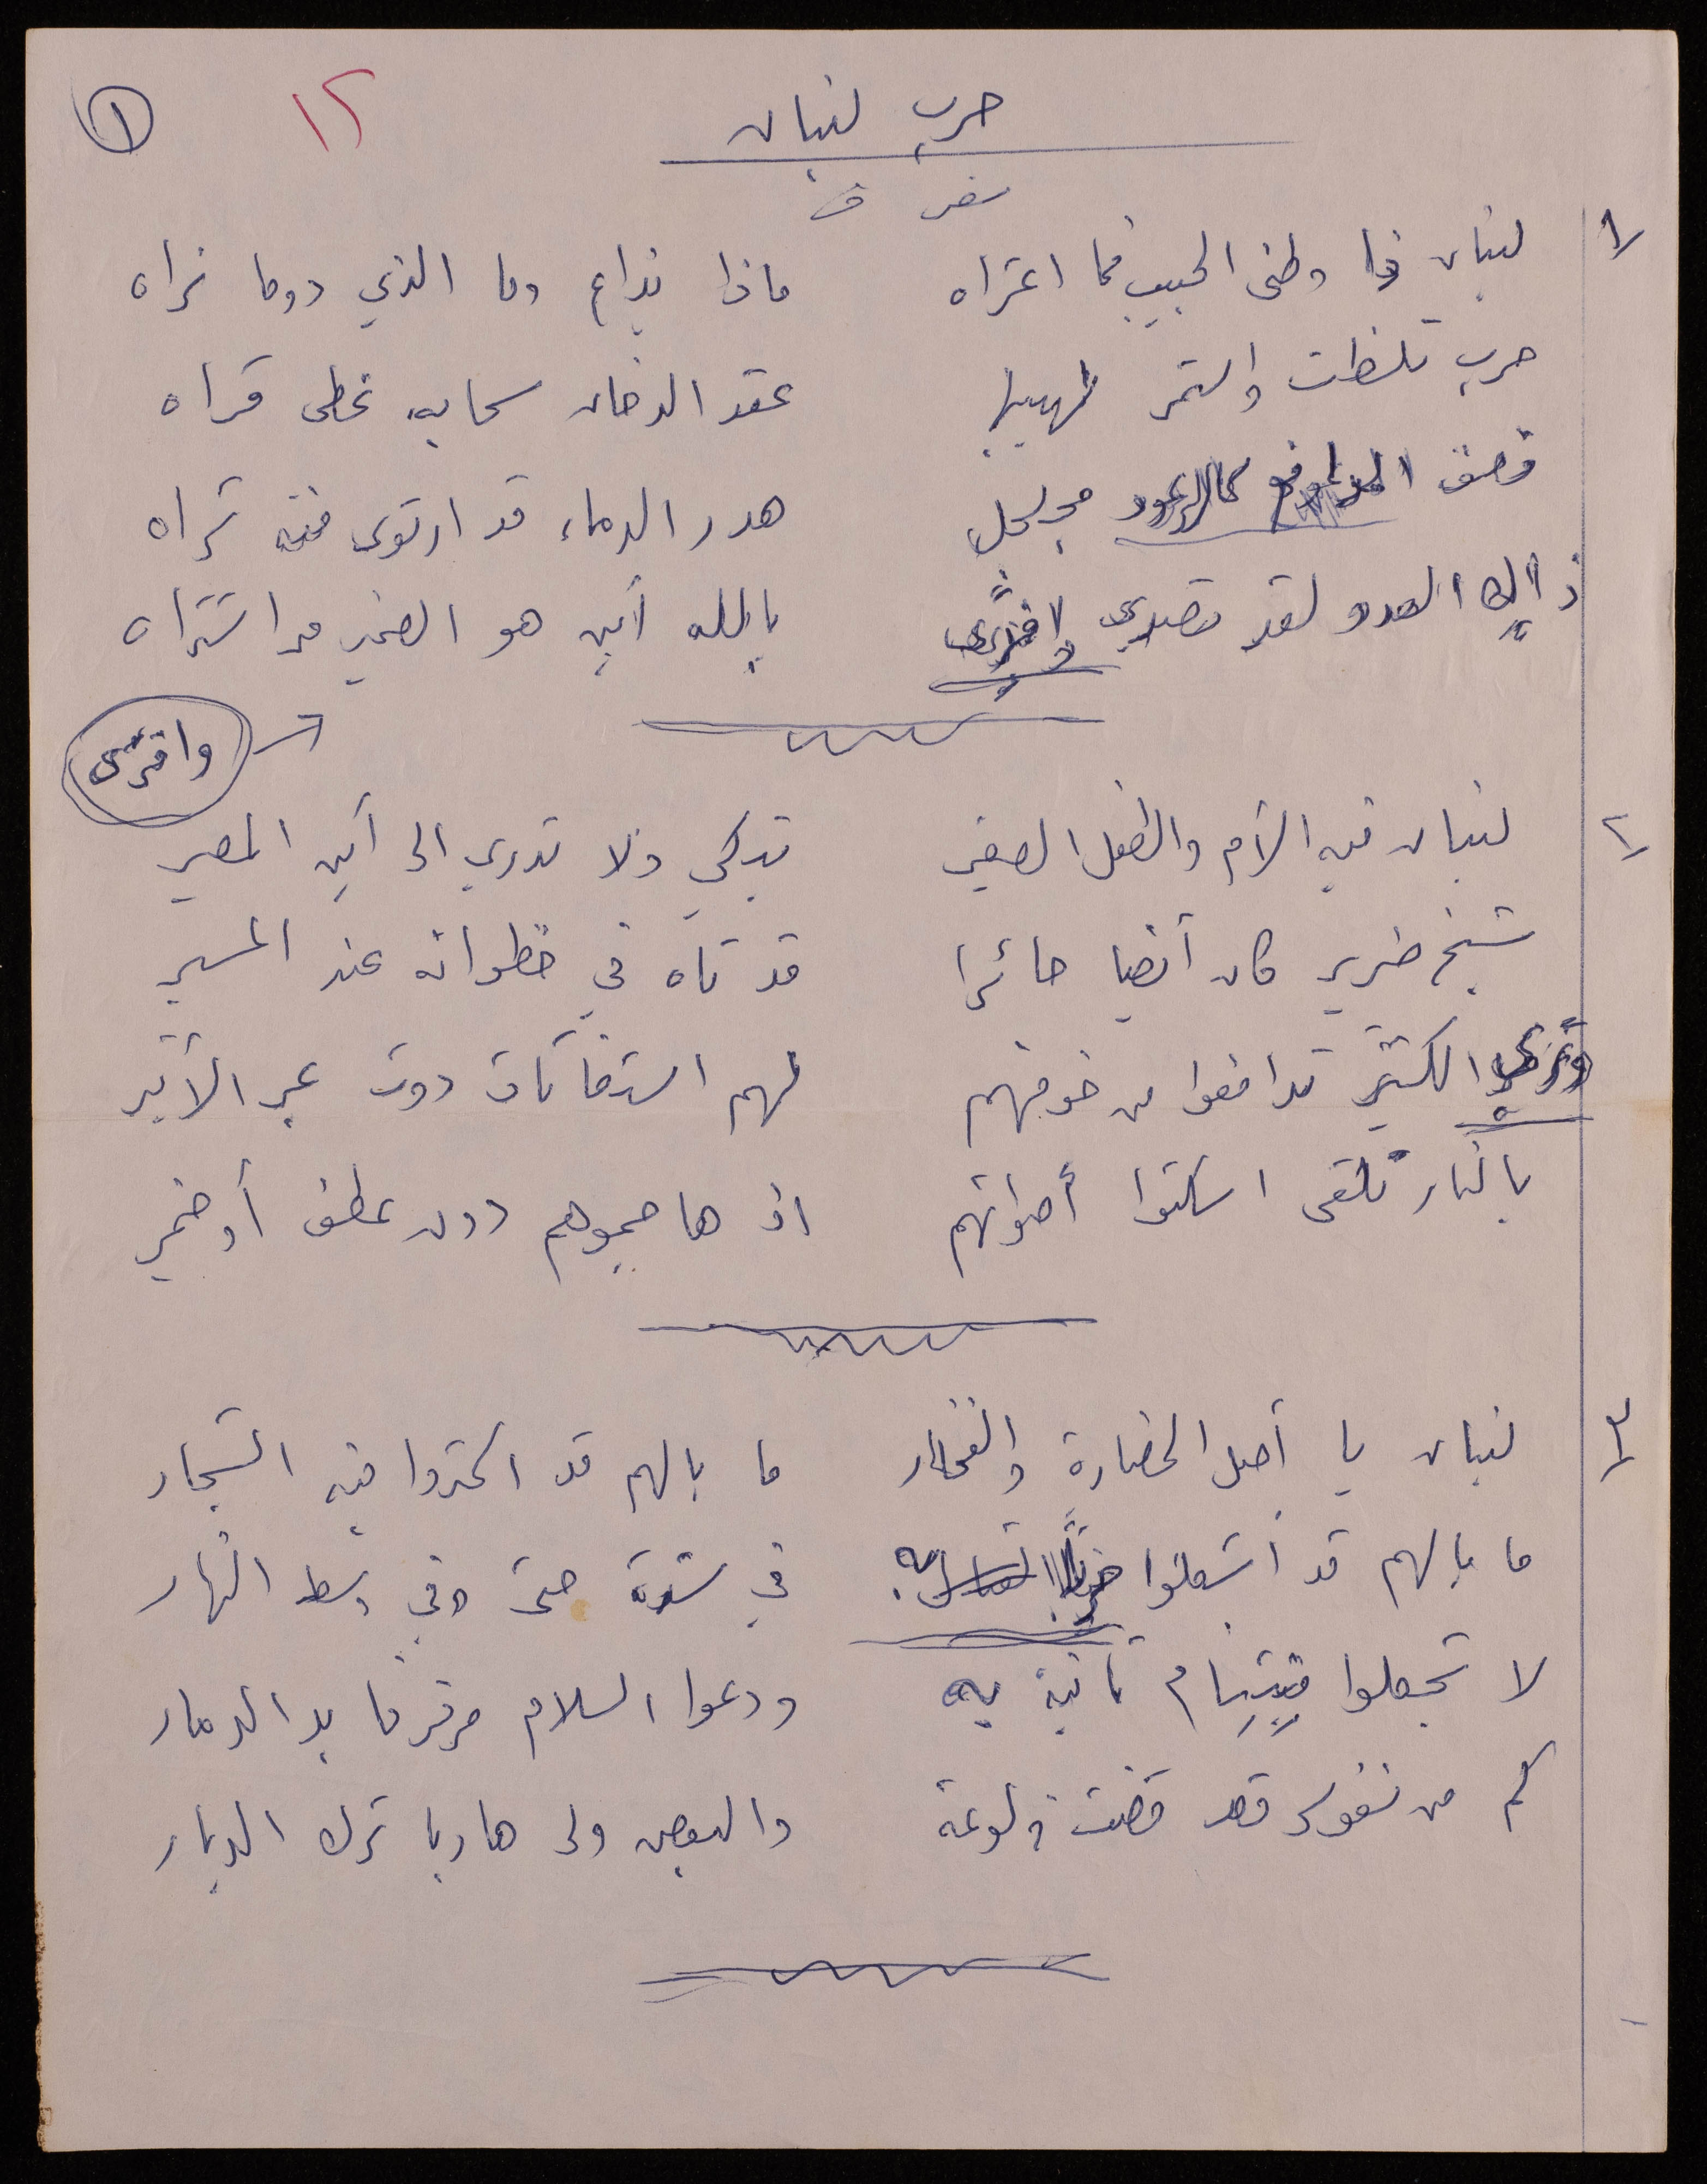 ١
١٢
حرب لبنان
١ لبنان يا وطني الحبيب فما اعتراه ماذا يذاع وما الذي دوما نراه
حرب تلظت واستمر لهيبها عقد الدخان سحابه غطى قراه
قصف المدافع كالرعود مجلجل هدر الدماء قد ارتوى منه ثراه
ذاك العدو لقد تصدى وافترى بالله أين هو الضمير من اشتراه
وافترى
٢ لبنان فيه الأم والطفل الصغير تبكي ولا تدري الى أين المصير
شيخ ضرير كان أيضا حائرا قد تاه في خطواته عند المسير
وترى الكثير تدافعوا من خوفهم لهم استغاثات دوت عبر الأثير
بالنار تلقى اسكتوا أصواتهم اذ هاجموهم دون عطف أو ضمير
٣ لبنان يا أصل الحضارة والفخار ما بالهم قد اكثروا فيه الشجار
ما بالهم قد أشعلوا حربا به في شدة حتى وفي وسط النهار
لا تجعلوا فيتنام ثانية به ودعوا السلام مرفرفا بدل الدمار
كم من نفوس قد قضت ولوعة والبعض ولى هاربا ترك الديار